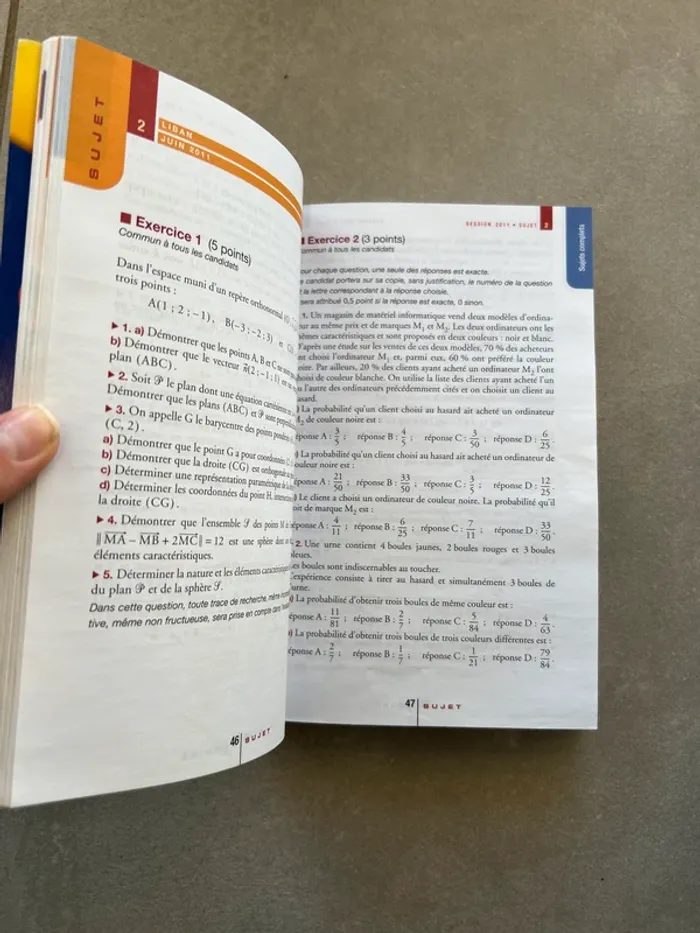 SUJET
2
LIBAN
JUIN 2011
■ Exercice 1 (5 points)
Commun à tous les candidats
Dans l'espace muni d'un repère orthonormal
trois points :
A(1 ; 2 ; −1), B(−3 ; −2 ; 3) et
▶ 1. a) Démontrer que les points A, B et C ne sont
b) Démontrer que le vecteur n⃗(2 ; −1 ; 1) est
plan (ABC).
▶ 2. Soit 𝒫 le plan dont une équation cartésienne est
Démontrer que les plans (ABC) et 𝒫 sont
▶ 3. On appelle G le barycentre des points pondérés
(C, 2).
a) Démontrer que le point G a pour coordonnées
b) Démontrer que la droite (CG) est orthogonale
c) Déterminer une représentation paramétrique de
d) Déterminer les coordonnées du point H,
la droite (CG).
▶ 4. Démontrer que l'ensemble 𝒮 des points M
‖MA − MB + 2MC‖ = 12 est une sphère dont
éléments caractéristiques.
▶ 5. Déterminer la nature et les éléments caractéristiques
du plan 𝒫 et de la sphère 𝒮.
Dans cette question, toute trace de recherche, même
tive, même non fructueuse, sera prise en compte dans
46 SUJET
SESSION 2011 • SUJET 2
Sujets complets
Exercice 2 (3 points)
ommun à tous les candidats
our chaque question, une seule des réponses est exacte.
e candidat portera sur sa copie, sans justification, le numéro de la question
t la lettre correspondant à la réponse choisie.
sera attribué 0,5 point si la réponse est exacte, 0 sinon.
1. Un magasin de matériel informatique vend deux modèles d'ordina-
eur au même prix et de marques M₁ et M₂. Les deux ordinateurs ont les
êmes caractéristiques et sont proposés en deux couleurs : noir et blanc.
'après une étude sur les ventes de ces deux modèles, 70 % des acheteurs
nt choisi l'ordinateur M₁ et, parmi eux, 60 % ont préféré la couleur
oire. Par ailleurs, 20 % des clients ayant acheté un ordinateur M₂ l'ont
hoisi de couleur blanche. On utilise la liste des clients ayant acheté l'un
u l'autre des ordinateurs précédemment cités et on choisit un client au
asard.
) La probabilité qu'un client choisi au hasard ait acheté un ordinateur
M₂ de couleur noire est :
éponse A : 3/5 ; réponse B : 4/5 ; réponse C : 3/50 ; réponse D : 6/25.
) La probabilité qu'un client choisi au hasard ait acheté un ordinateur de
ouleur noire est :
éponse A : 21/50 ; réponse B : 33/50 ; réponse C : 3/5 ; réponse D : 12/25.
) Le client a choisi un ordinateur de couleur noire. La probabilité qu'il
oit de marque M₂ est :
éponse A : 4/11 ; réponse B : 6/25 ; réponse C : 7/11 ; réponse D : 33/50.
2. Une urne contient 4 boules jaunes, 2 boules rouges et 3 boules
leues.
es boules sont indiscernables au toucher.
'expérience consiste à tirer au hasard et simultanément 3 boules de
'urne.
) La probabilité d'obtenir trois boules de même couleur est :
éponse A : 11/81 ; réponse B : 2/7 ; réponse C : 5/84 ; réponse D : 4/63.
) La probabilité d'obtenir trois boules de trois couleurs différentes est :
éponse A : 2/7 ; réponse B : 1/7 ; réponse C : 1/21 ; réponse D : 79/84.
47 SUJET